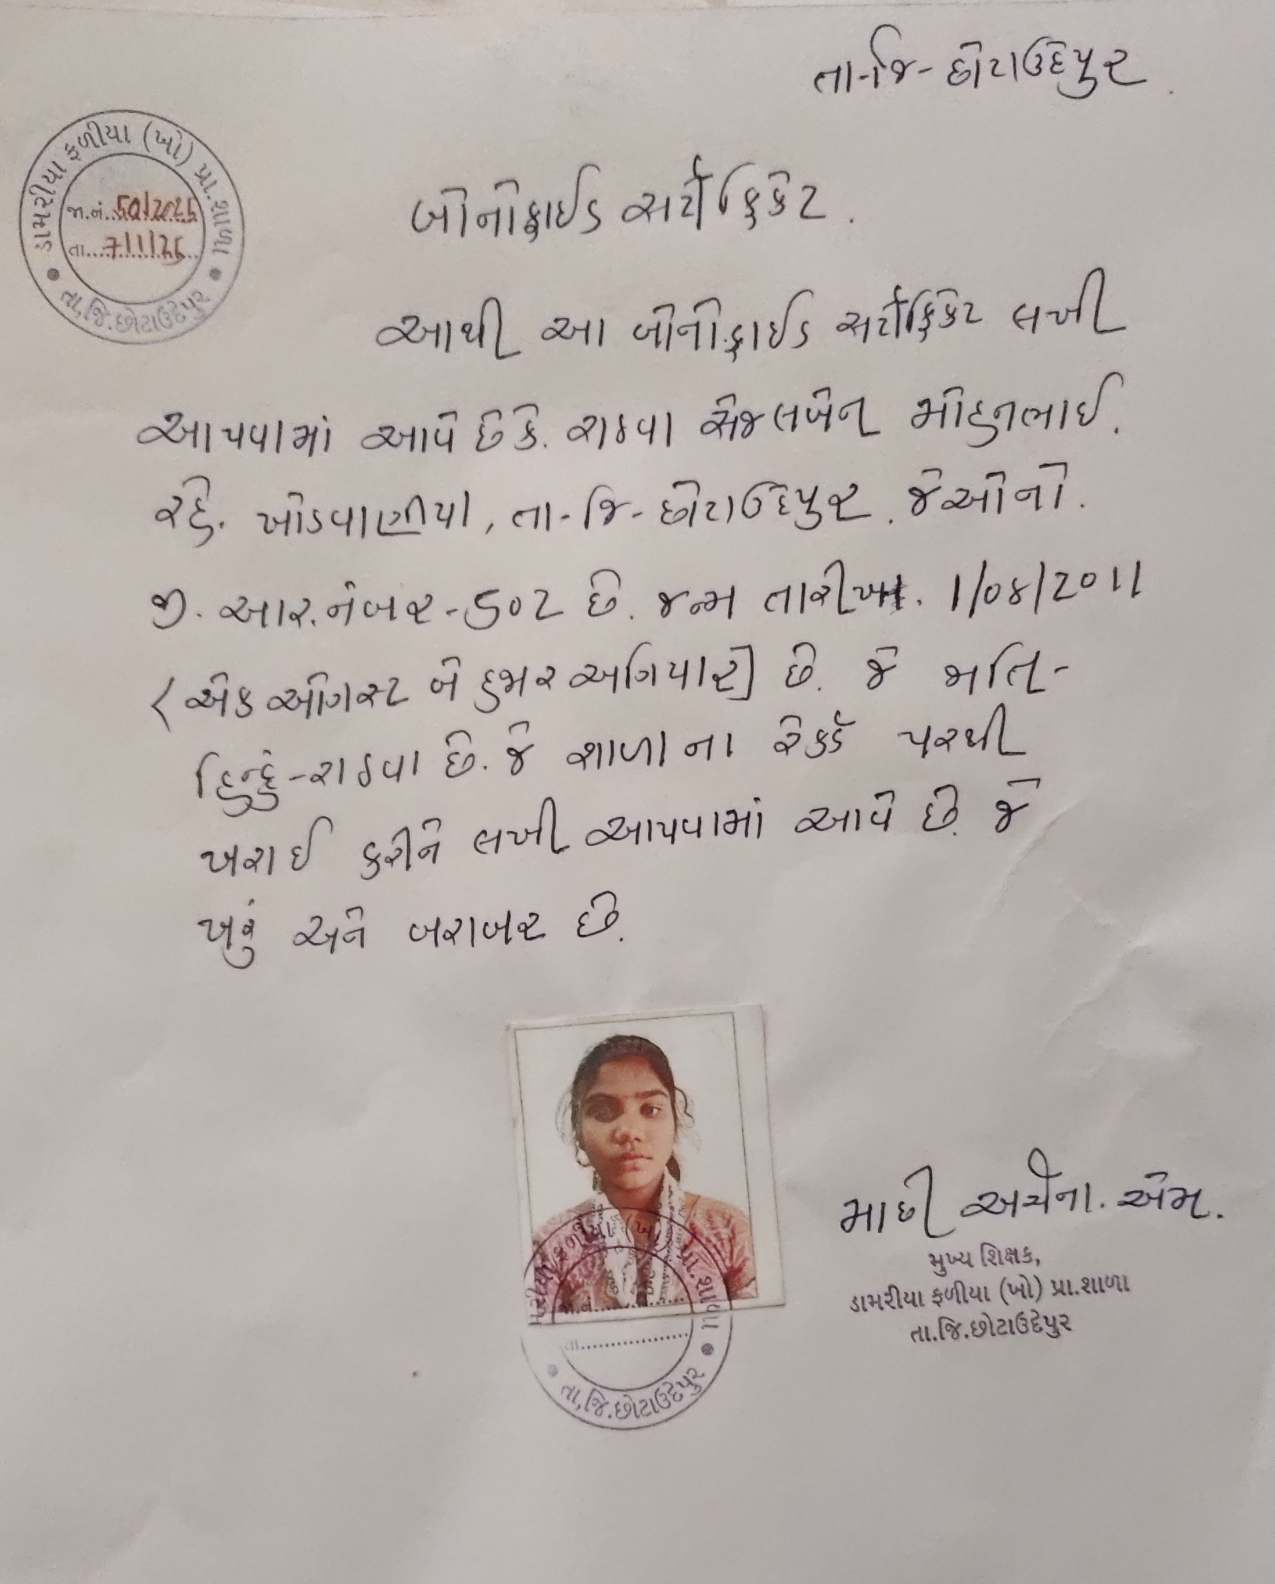 તા-જિ-છોટાઉદેપુર.
ડામરીયા ફળીયા (ખો) પ્રા.શાળા
જા.નં. 50/2026
તા. 7/1/26
તા,જિ.છોટાઉદેપુર
બોનોફાઈડ સર્ટીફિકેટ.
આથી આ બોનોફાઈડ સર્ટીફિકેટ લખી
આપવામાં આવે છે કે. રાઠવા સેજલબેન મોહનભાઈ.
રહે. ખોડવાણીયા, તા-જિ-છોટાઉદેપુર. જેઓનો.
જી. આર.નંબર-502 છે. જન્મ તારીખ. 1/08/2011
(એક ઓગસ્ટ બે હજાર અગિયાર) છે. જે જાતિ-
હિન્દુ-રાઠવા છે. જે શાળાના રેકર્ડ પરથી
ખરાઈ કરીને લખી આપવામાં આવે છે. જે
ખરું અને બરાબર છે.
માછી અર્ચના. એમ.
મુખ્ય શિક્ષક,
ડામરીયા ફળીયા (ખો) પ્રા.શાળા
તા.જિ.છોટાઉદેપુર
તા,જિ.છોટાઉદેપુર